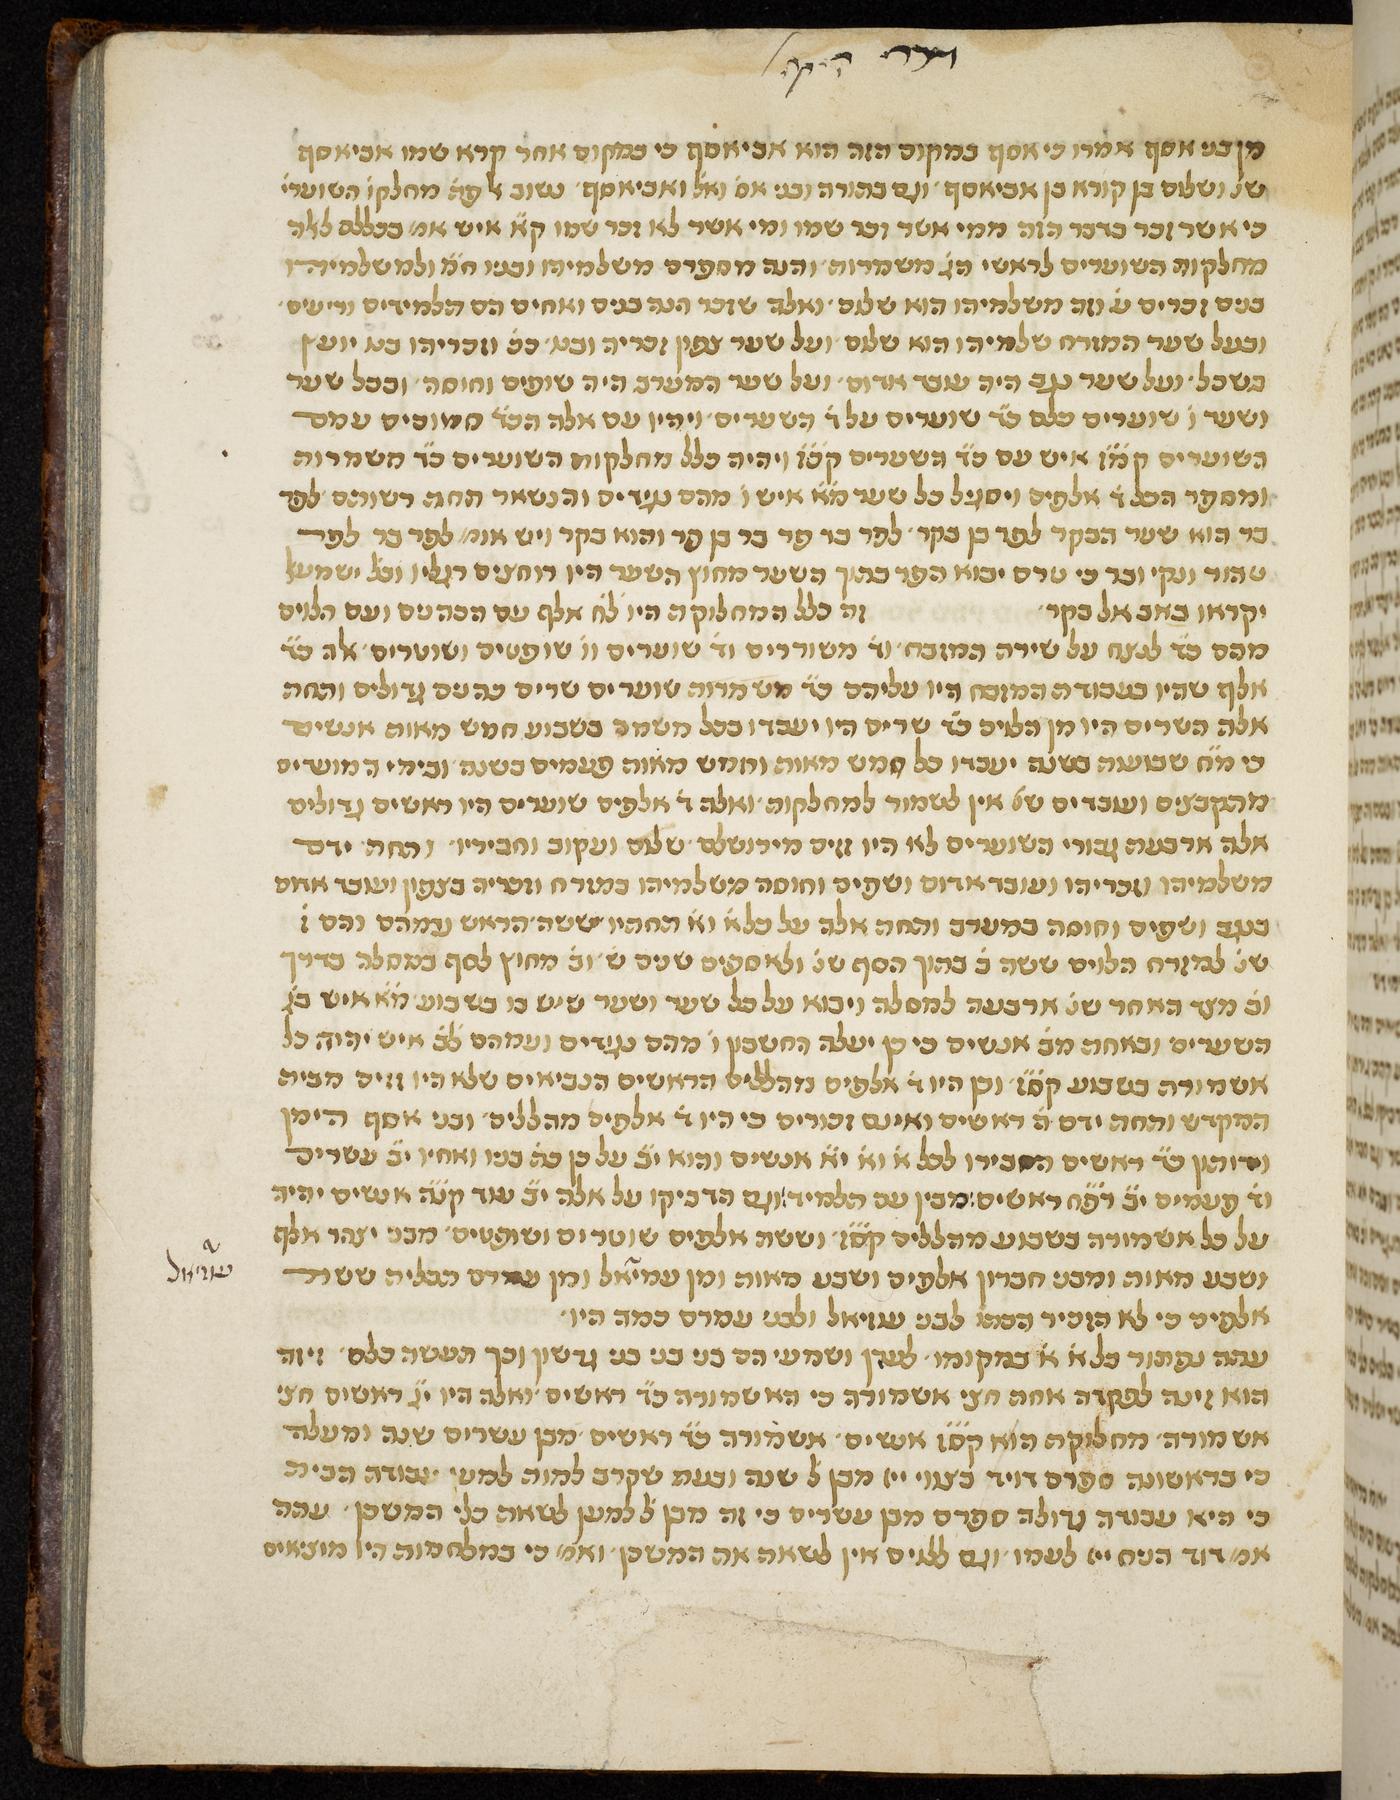 מן בני אסף אמרו כי אסף במקום הזה הוא אביאסף כי במקום אחר קרא שמו אביאסף
שנ׳ ושלום בן קורא בן אביאסף׳ וגם בתורה ובני אס׳ ואל׳ ואביאסף׳ נשוב מחלקו׳ השוערי׳
כי אשר זכר בדבר הזה ממי אשר זכר שמו ומי אשר לא זכר שמו איש אמ׳ בכללם לאלה
מחלקות השוערים לראשי משמרות׳ והנה מספרם משלמיהו ובניו ולמשלמיהו
בנים זכרים וזה משלמיהו הוא שלום׳ ואלה שזכר הנה בנים ואחים הם תלמידים וריעים׳
ובעל שער המזרח שלמיהו הוא שלום׳ ועל שער צפון זכריה ובנו׳ וזכריהו בנו יועץ
בשכל׳ ועל שער נגב היה עובד אדום׳ ועל שער המערב היה שופים וחוסה׳ ובכל שער
ושער ו׳ שוערים כלם כ״ד שוערים על ד׳ השערים׳ ויהיו עם אלה הכ״ד סמוכים עמם
השוערים איש עם כ״ד השערים ויהיה כלל מחלקות השוערים כ״ד משמרות
ומספר הכל ד׳ אלפים ויסגיל כל שער איש ו׳ מהם נגידים והנשאר תחת רשותם לפר
בר הוא שער הבקר לפר בן בקר׳ לפר בר פר בר בן פר והוא בקר ויש אומ׳ לפר בר לפר
טהור ונקי ובר כי טרם יבוא הפר בתוך השער מחוץ השער היו רוחצים רגליו וכל ישמעאל
יקראו באב אל בקר׳ זה כלל המחלוקת היו ל״ח אלף עם הכהנים ועם הלוים
מהם כ״ד לנצח על שירה המזבח׳ וד׳ משוררים וד׳ שוערים וו׳ שופטים ושוטרים׳ אלה כ״ד
אלף שהיו בעבודת המזבח היו עליהם כ״ד משמרות שוערים שרים כהנים גדולים ותחת
אלה השרים היו מן הלוים כ״ד שרים היו יעבדו בכל משמר בשבוע חמש מאות אנשים
כי מ״ח שבועות בשנה יעברו כל חמש מאות וחמש מאות פעמים בשנה ובימי המועדים
מתקבצים ועובדים אין לשמור למחלקות׳ ואלה ד׳ אלפים שוערים היו ראשים גדולים
אלה ארבעת גבורי השוערים לא היו זזים מירושלם׳ שלום ועקוב וחביריו׳ ותחת ידם
משלמיהו וזכריהו ועובד אדום ושפים וחוסה משלמיהו במזרח וזכריה בצפון ועובד אדום
בנגב ושפים וחוסה במערב ותחת אלה על כל א׳ וא׳ תחתיו ששה הראש עמהם והם ז׳
שנ׳ למזרח הלוים ששה ב׳ בתוך הסף שנ׳ ולאספים שנים וב׳ מחוץ לסף במסלה בדרך
וב׳ מצד האחר שנ׳ ארבעה למסלה ויבוא על כל שער ושער שיש בו בשבוע איש
השערים ובאחת אנשים כי כן יעלה החשבון ו׳ מהם נגידים ועמהם איש יהיה כל
אשמורת בשבוע וכן היו ד׳ אלפים מהללים הראשים הנביאים שלא היו זזים מבית
המקדש ותחת ידם ה׳ ראשים ואינם זכורים כי היו ד׳ אלפים מהללים׳ ובני אסף הימן
וידותון כ״ד ראשים הזכירו לכל א׳ וא׳ י״א אנשים והוא י״ב על כן בנו ואחיו י״ב עשרים
וד׳ פעמים י״ב רפ״ח ראשים מבין עם תלמיד׳ וגם הדביקו על אלה י״ב עוד אנשים יהיה
על כל אשמורה בשבוע מהללים וששת אלפים שוטרים ושופטים׳ מבני יצהר אלף
ושבע מאות ומבני חברון אלפים ושבע מאות ומן עמיאל ומן עמרם תכלית ששת
אלפים כי לא הזכיר הכתו׳ לבני עוזיאל ולבני עמרם כמה היו׳
עתה נפתור כל א׳ א׳ במקומו׳ לעדן ושמעי הם בני בני בני גרשון וכך תעשה כלם׳ זיזה
הוא זינה לפקדה אחת חצי אשמורה כי האשמורה כ״ד ראשים׳ ואלה היו י״ג ראשים חצי
אשמורה׳ מחלוקת הוא אנשים׳ אשמורה כ״ד ראשים׳ מבן עשרים שנה ומעלה
כי בראשונה ספרם דויד בצווי ייי מבן ל׳ שנה ובעת שקרב למות למעי׳ עבודת הבית
כי היא עבודה גדולה ספרם מבן עשרים כי זה מבן ל׳ למען לשאת כלי המשכן׳ עתה
אמ׳ דוד הניח ייי לעמו׳ וגם ללוים אין לשאת את המשכן׳ ואמ׳ כי במלחמות היו מוציאים
עוזיאל